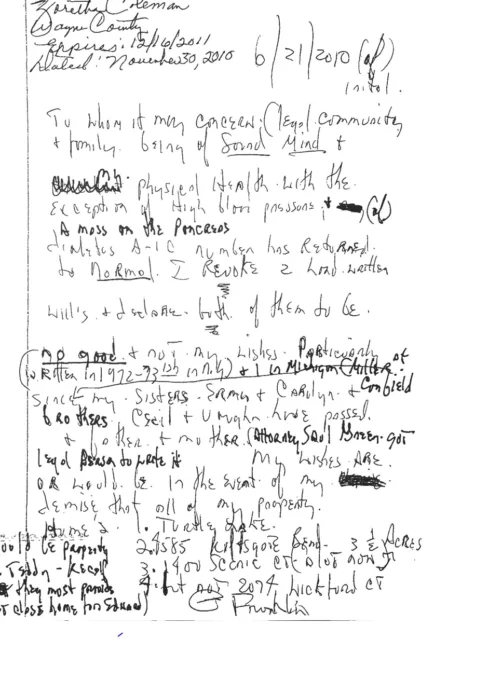 Zoretha Coleman
Wayne County
Expires: 12/16/2011
Dated: November 30, 2010
6/21/2010 (af)
initial.
To whom it may concern: (legal community
& family. being of Sound Mind &
physical Health with the
exception of High blood pressure, & (af)
A mass on the Pancreas
diabetes A-1C number has Returned
to Normal. I Revoke 2 hand written
will's & declare both of them to be
no good & not my wishes. Particularly
written in 1972-73 1st in N.Y.) & 1 in Michigan
Since my Sisters Erma & Carolyn &
brothers Cecil & Vaughn have passed.
& father & mother (Attorney Saul Green got
legal person to write it My wishes ARE
OR would be in the event of my
demise that all of my property
1. Turtle Lake.
would be property 2. 4585 Kirtsgore Bend 3 ½ Acres
Teddy - Kecalf 3. 1400 Scenic Ct
they most provide 4. but not 2074 Wickford Ct
close home for Edward) Franklin